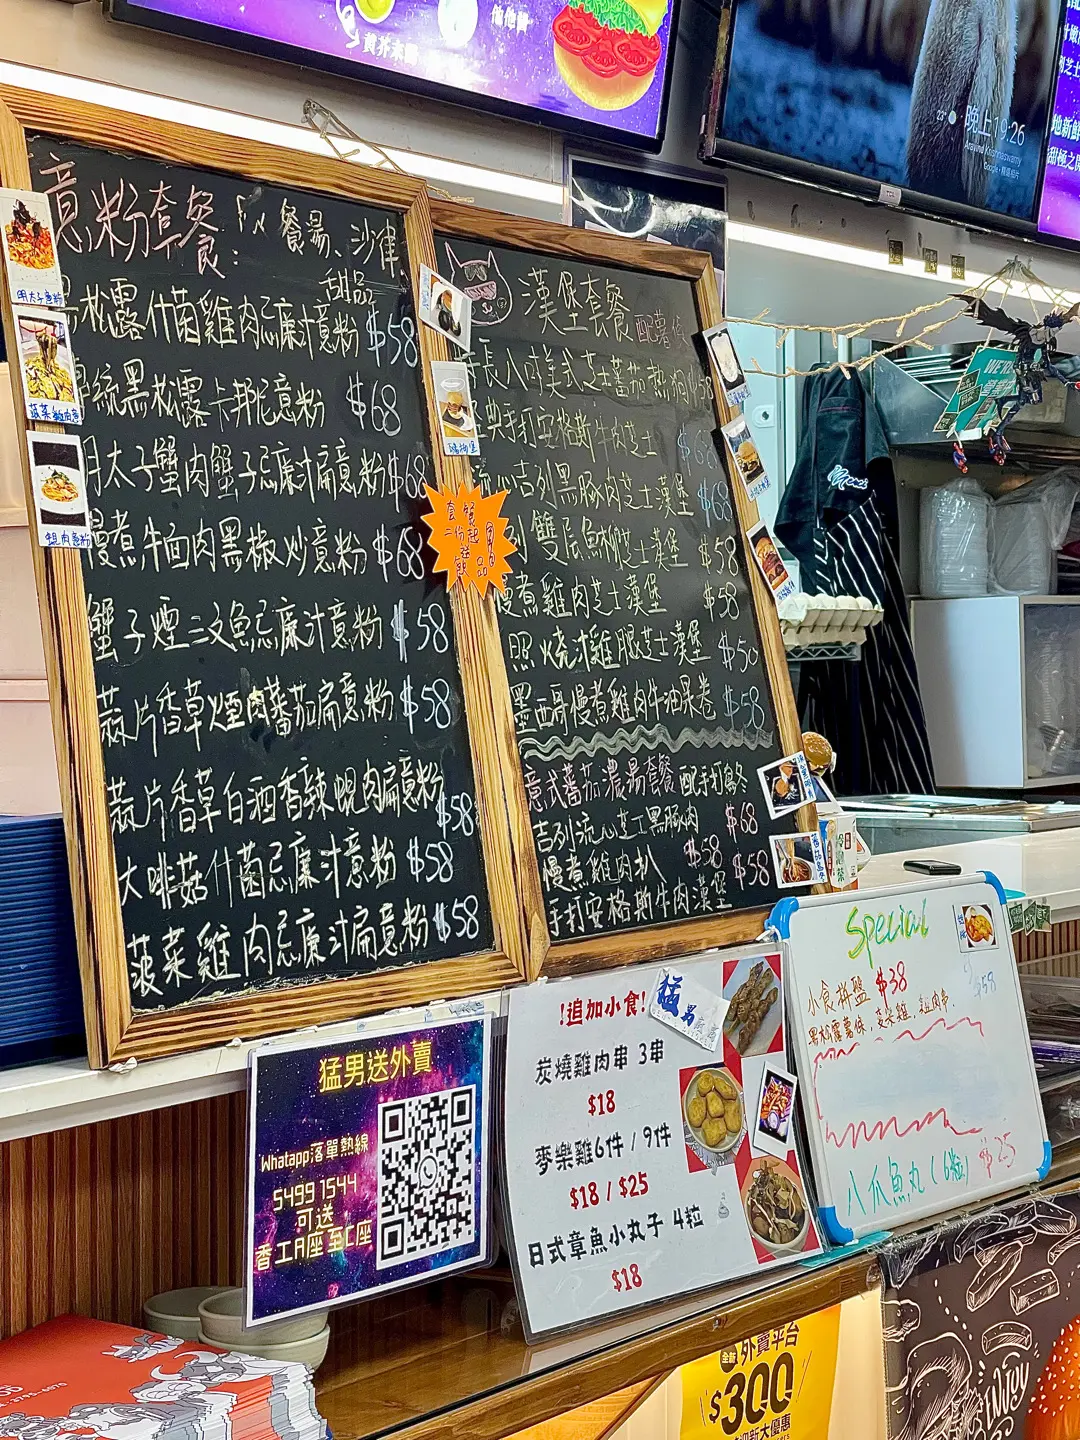 他他醬
黃芥末醬
23°
晚上19:26
Aravind Krishnaswamy
意粉套餐: Fx 餐湯、沙律
甜品
松露什菌雞肉忌廉汁意粉 $58
絲黑松露卡邦尼意粉 $68
明太子蟹肉蟹子忌廉汁扁意粉 $68
慢煮牛面肉黑椒炒意粉 $68
蟹子煙三文魚忌廉汁意粉 $58
蒜片香草煙肉蕃茄扁意粉 $58
蒜片香草白酒香辣蜆肉扁意粉 $58
大啡菇什菌忌廉汁意粉 $58
菠菜雞肉忌廉汁扁意粉 $58
明太子意粉
蜆肉意粉
漢堡套餐 配薯條
長八吋美式芝士蕃茄熱狗 $58
典手打安格斯牛肉芝士 $68
流心吉列黑豚肉芝士漢堡 $68
雙層魚柳芝士漢堡 $58
慢煮雞肉芝士漢堡 $58
照燒汁雞腿芝士漢堡 $50
墨西哥慢煮雞肉牛油果卷 $58
意式蕃茄濃湯套餐 配手打窩冬
吉列流心芝士黑豚肉 $68
慢煮雞肉扒 $58
手打安格斯牛肉漢堡 $58
套餐
二份起
送
飲品
猛男送外賣
Whatapp落單熱線
5499 1544
可送
香工A座至C座
!追加小食!
猛男
炭燒雞肉串 3串
$18
麥樂雞6件 / 9件
$18 / $25
日式章魚小丸子 4粒
$18
Special
小食拼盤 $38
黑松露薯條、麥樂雞、雞肉串.
$58
八爪魚丸(6粒) $25
全新 外賣平台
$300
迎新大優惠
ENJOY